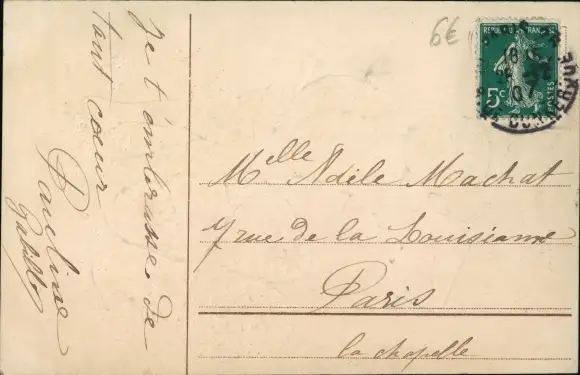 Je t'embrasse de
tout cœur
Pauline
6€
REPUBLIQUE FRANÇAISE
5c
POSTES
18
07
Melle Adile Machat
7 rue de la Louisiane
Paris
la chapelle